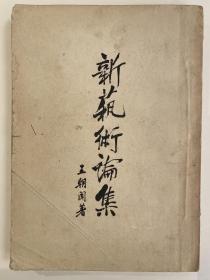 新藝術論集
王朝聞著